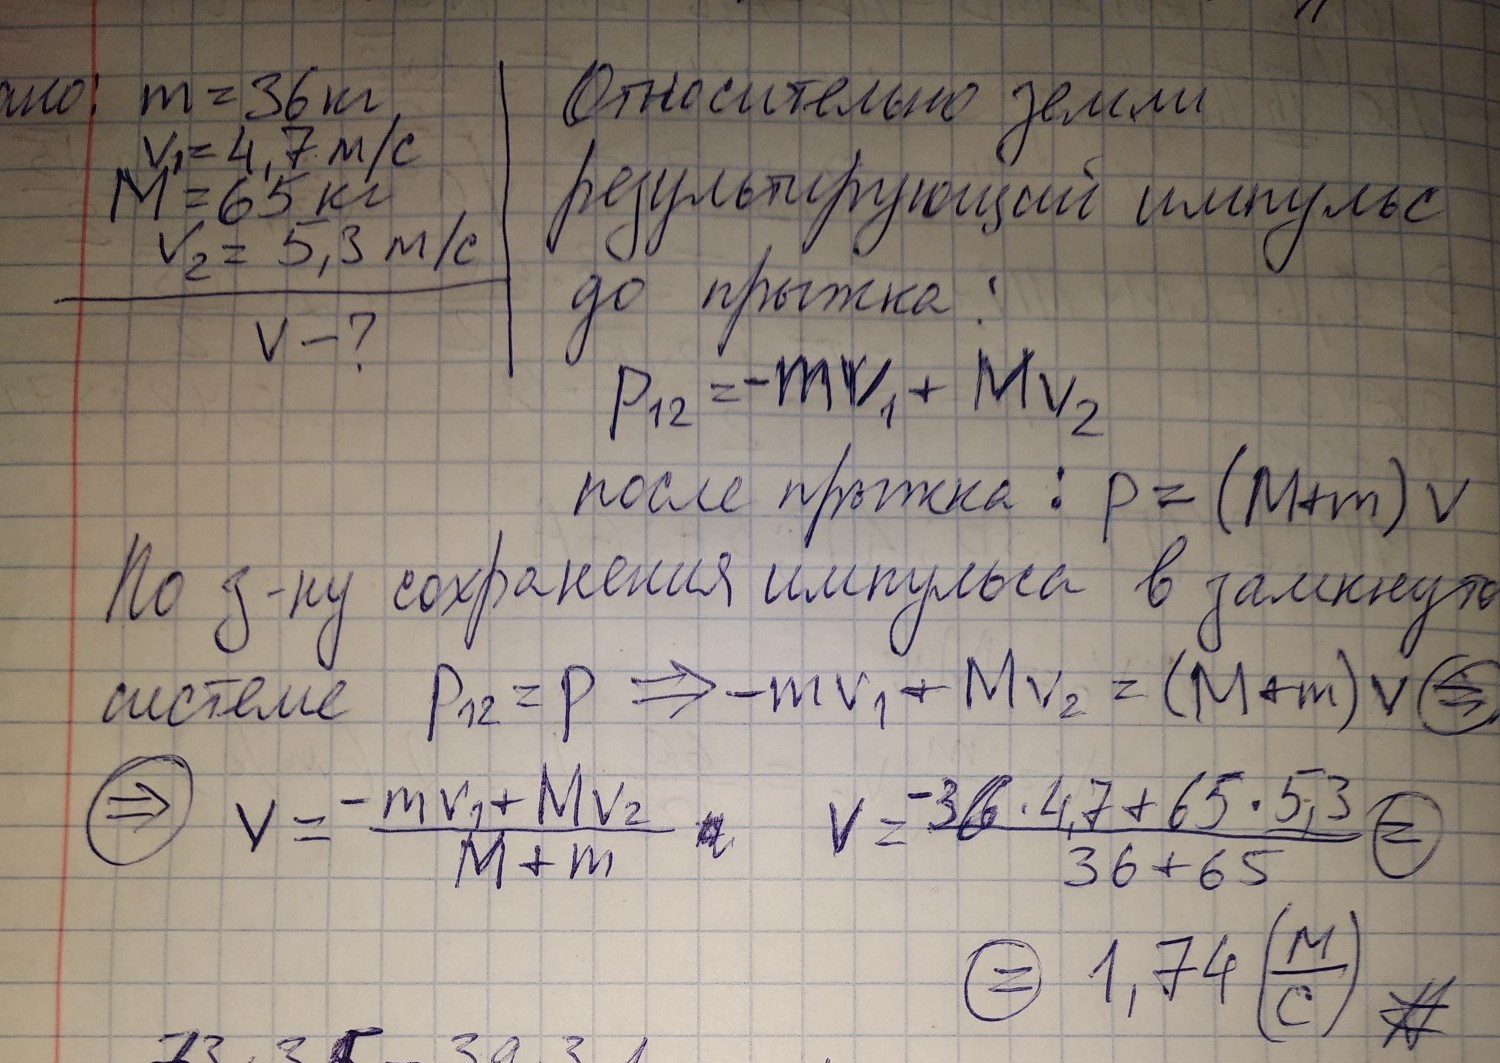 ано: m = 36 кг
v₁ = 4,7 м/с
M = 65 кг
v₂ = 5,3 м/с
v – ?
Относительно земли
результирующий импульс
до прыжка :
p₁₂ = -mv₁ + Mv₂
после прыжка : p = (M+m) v
По з-ну сохранения импульса в замкнуто
системе p₁₂ = p ⇒ -mv₁ + Mv₂ = (M+m) v ⇒
⇒ v = (-mv₁ + Mv₂)/(M + m) v = (-36 · 4,7 + 65 · 5,3)/(36 + 65) =
= 1,74 (м/с)